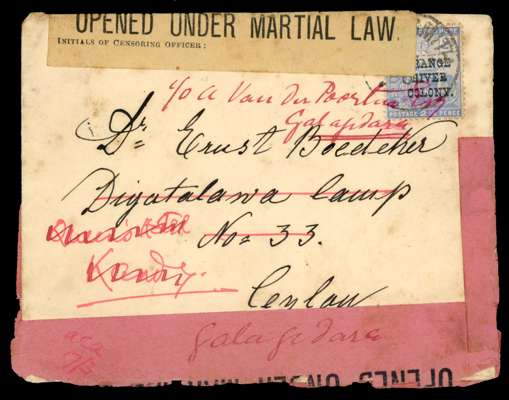 OPENED UNDER MARTIAL LAW.
INITIALS OF CENSORING OFFICER:
RANGE
RIVER
COLONY.
POSTAGE 2½ PENCE
c/o A Van Der Poorten Esq
Galagedara
Dr. Ernst Boetticher
Diyatalawa Camp
No= 33.
Kandy.
Ceylon
Galagedara
OPENED UNDER MAR